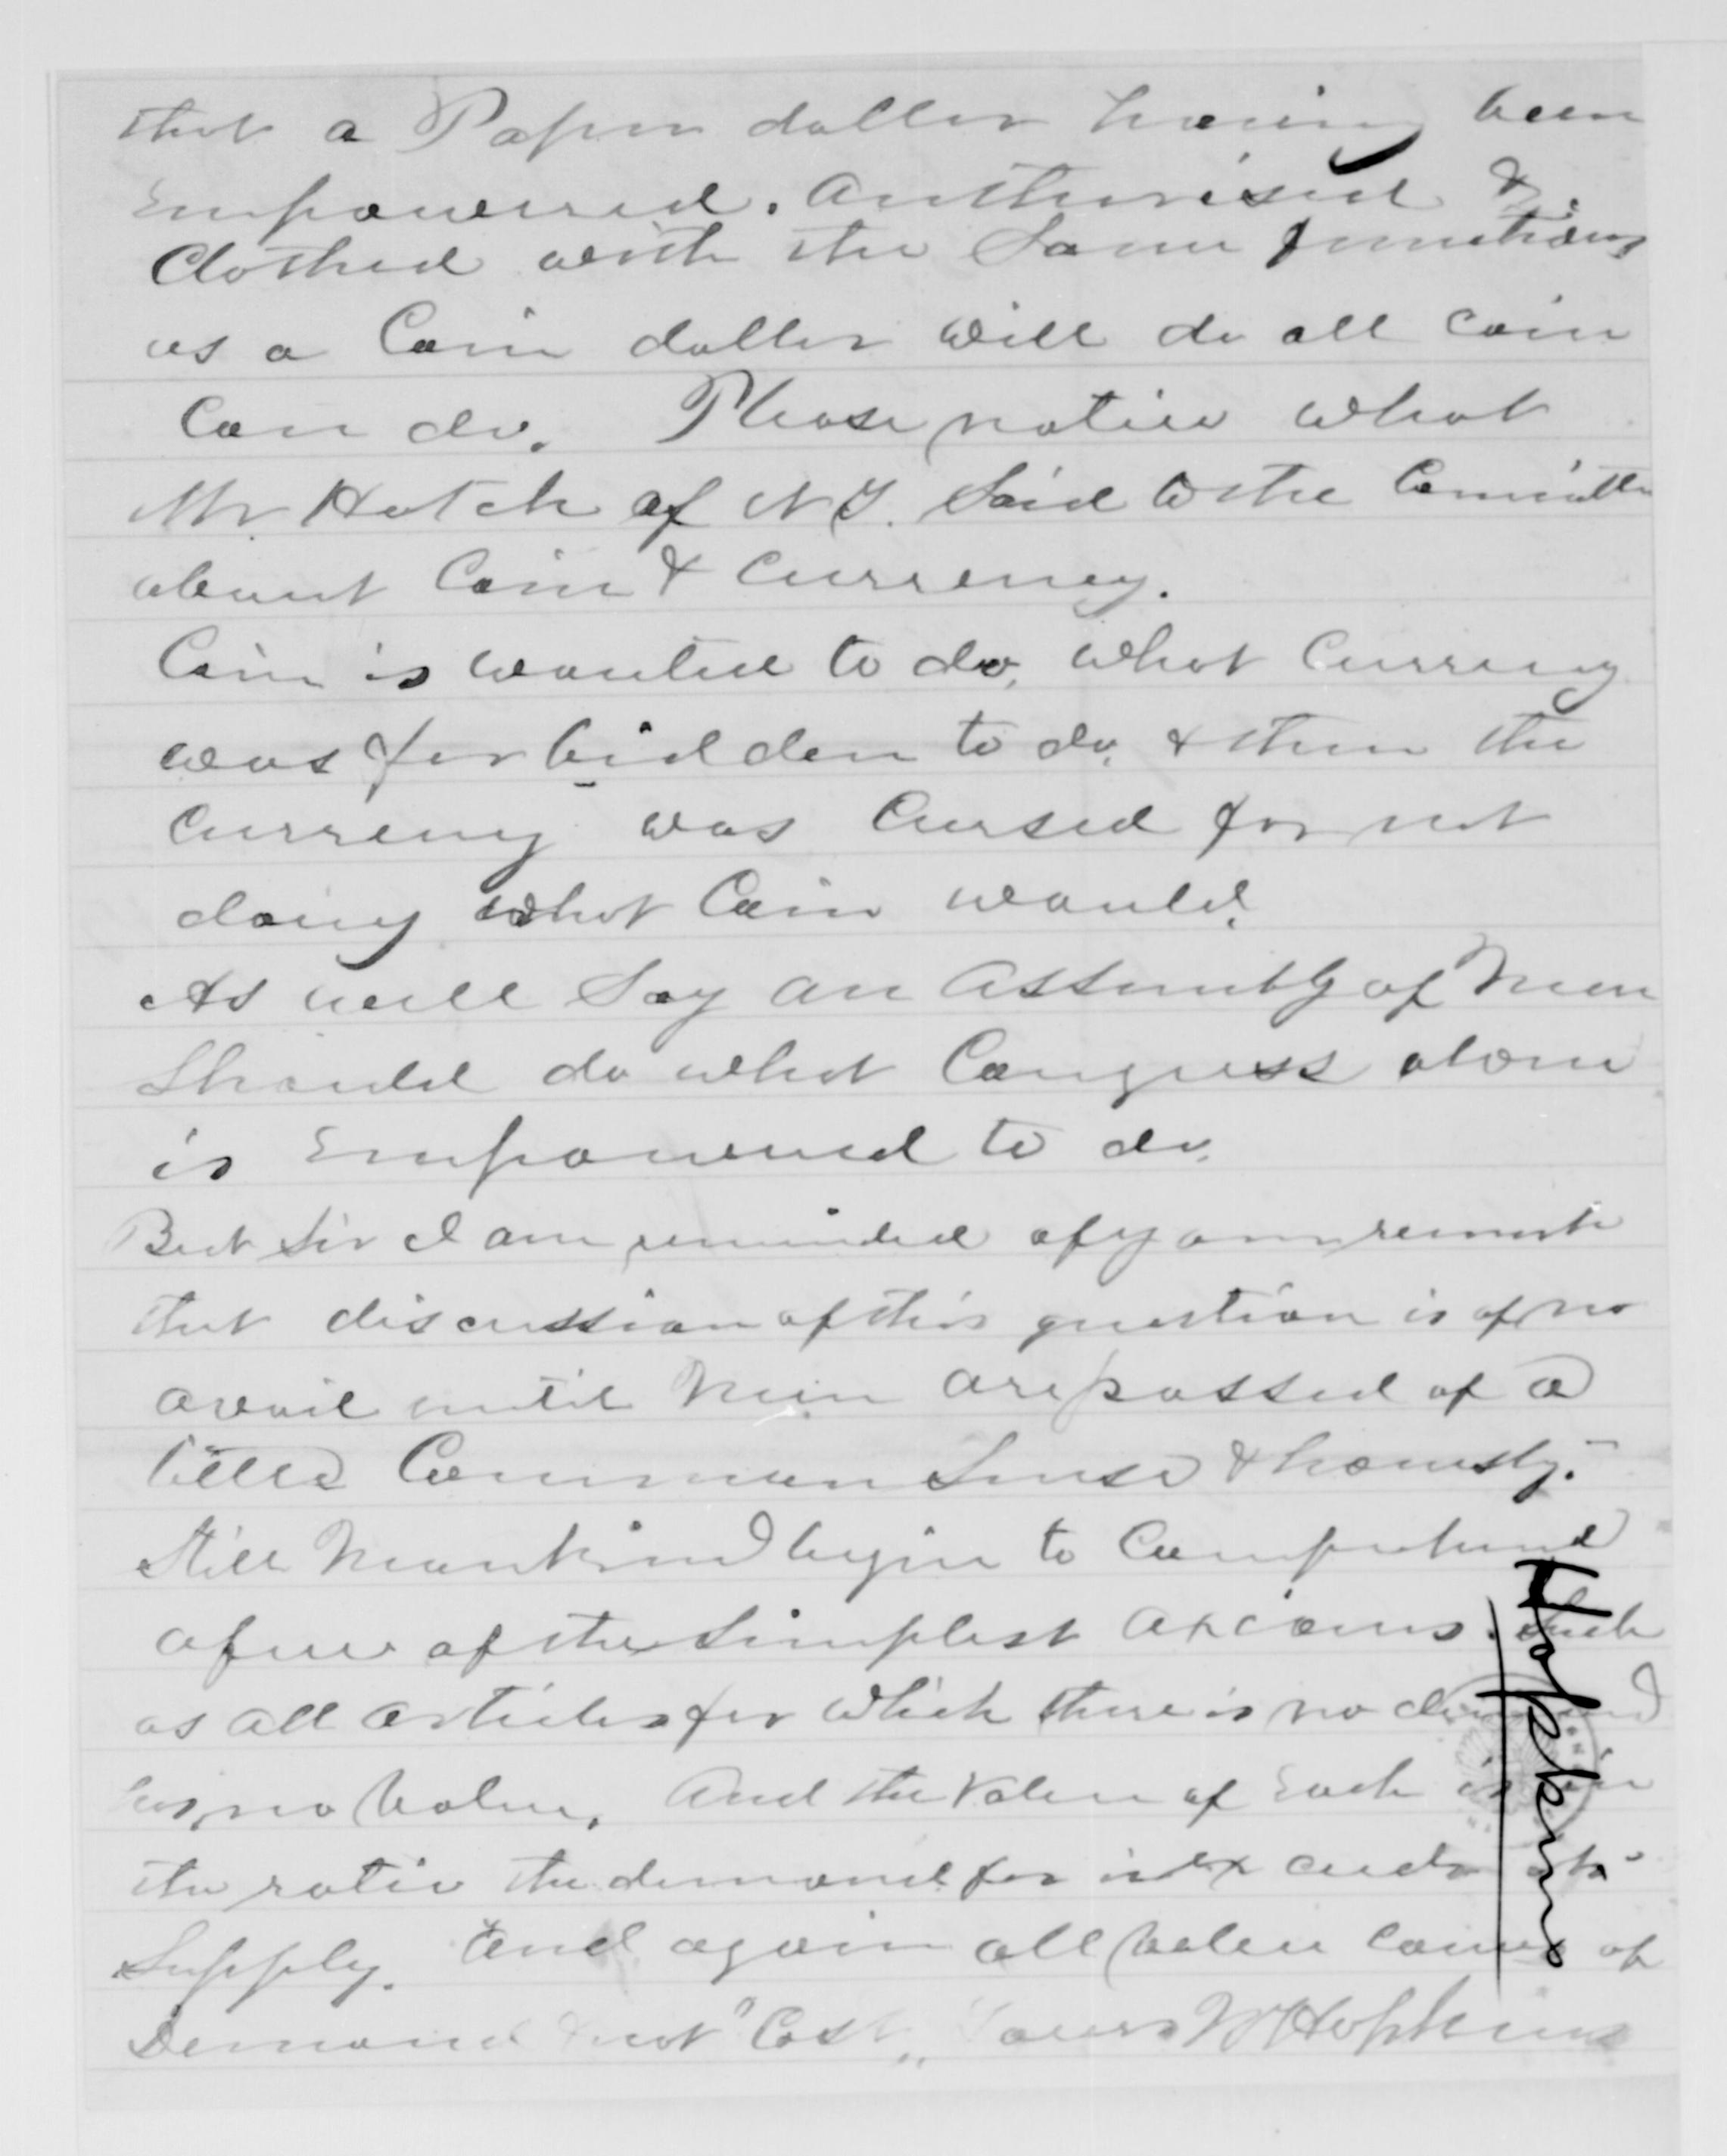 that a Paper dollar having been
Empowered. Authorised &
Clothed with the Same functions
as a Coin dollar will do all coin
Can do. Please notice what
Mr Hatch of N Y. Said to the Committe
about Coin & Currency.
Coin is wanted to do, what Currency
was forbidden to do, & then the
Currency was Cursed for not
doing what Coin would.
As well Say an Assembly of Men
Should do what Congress alone
is Empowered to do.
But Sir I am reminded of your remark
that discussion of this question is of no
avail until Men are possed of a
little Common Sense & honesty.
Still Mankind begin to Comprehend
a few of the Simplest axioms. Such
as all articles for which there is no demand
has no Value. And the Value of Each is in
the ratio the demand for it Exceeds its
Supply. And again all Value Comes of
Demand & not "Cost" Yours W Hopkins
Hopkins